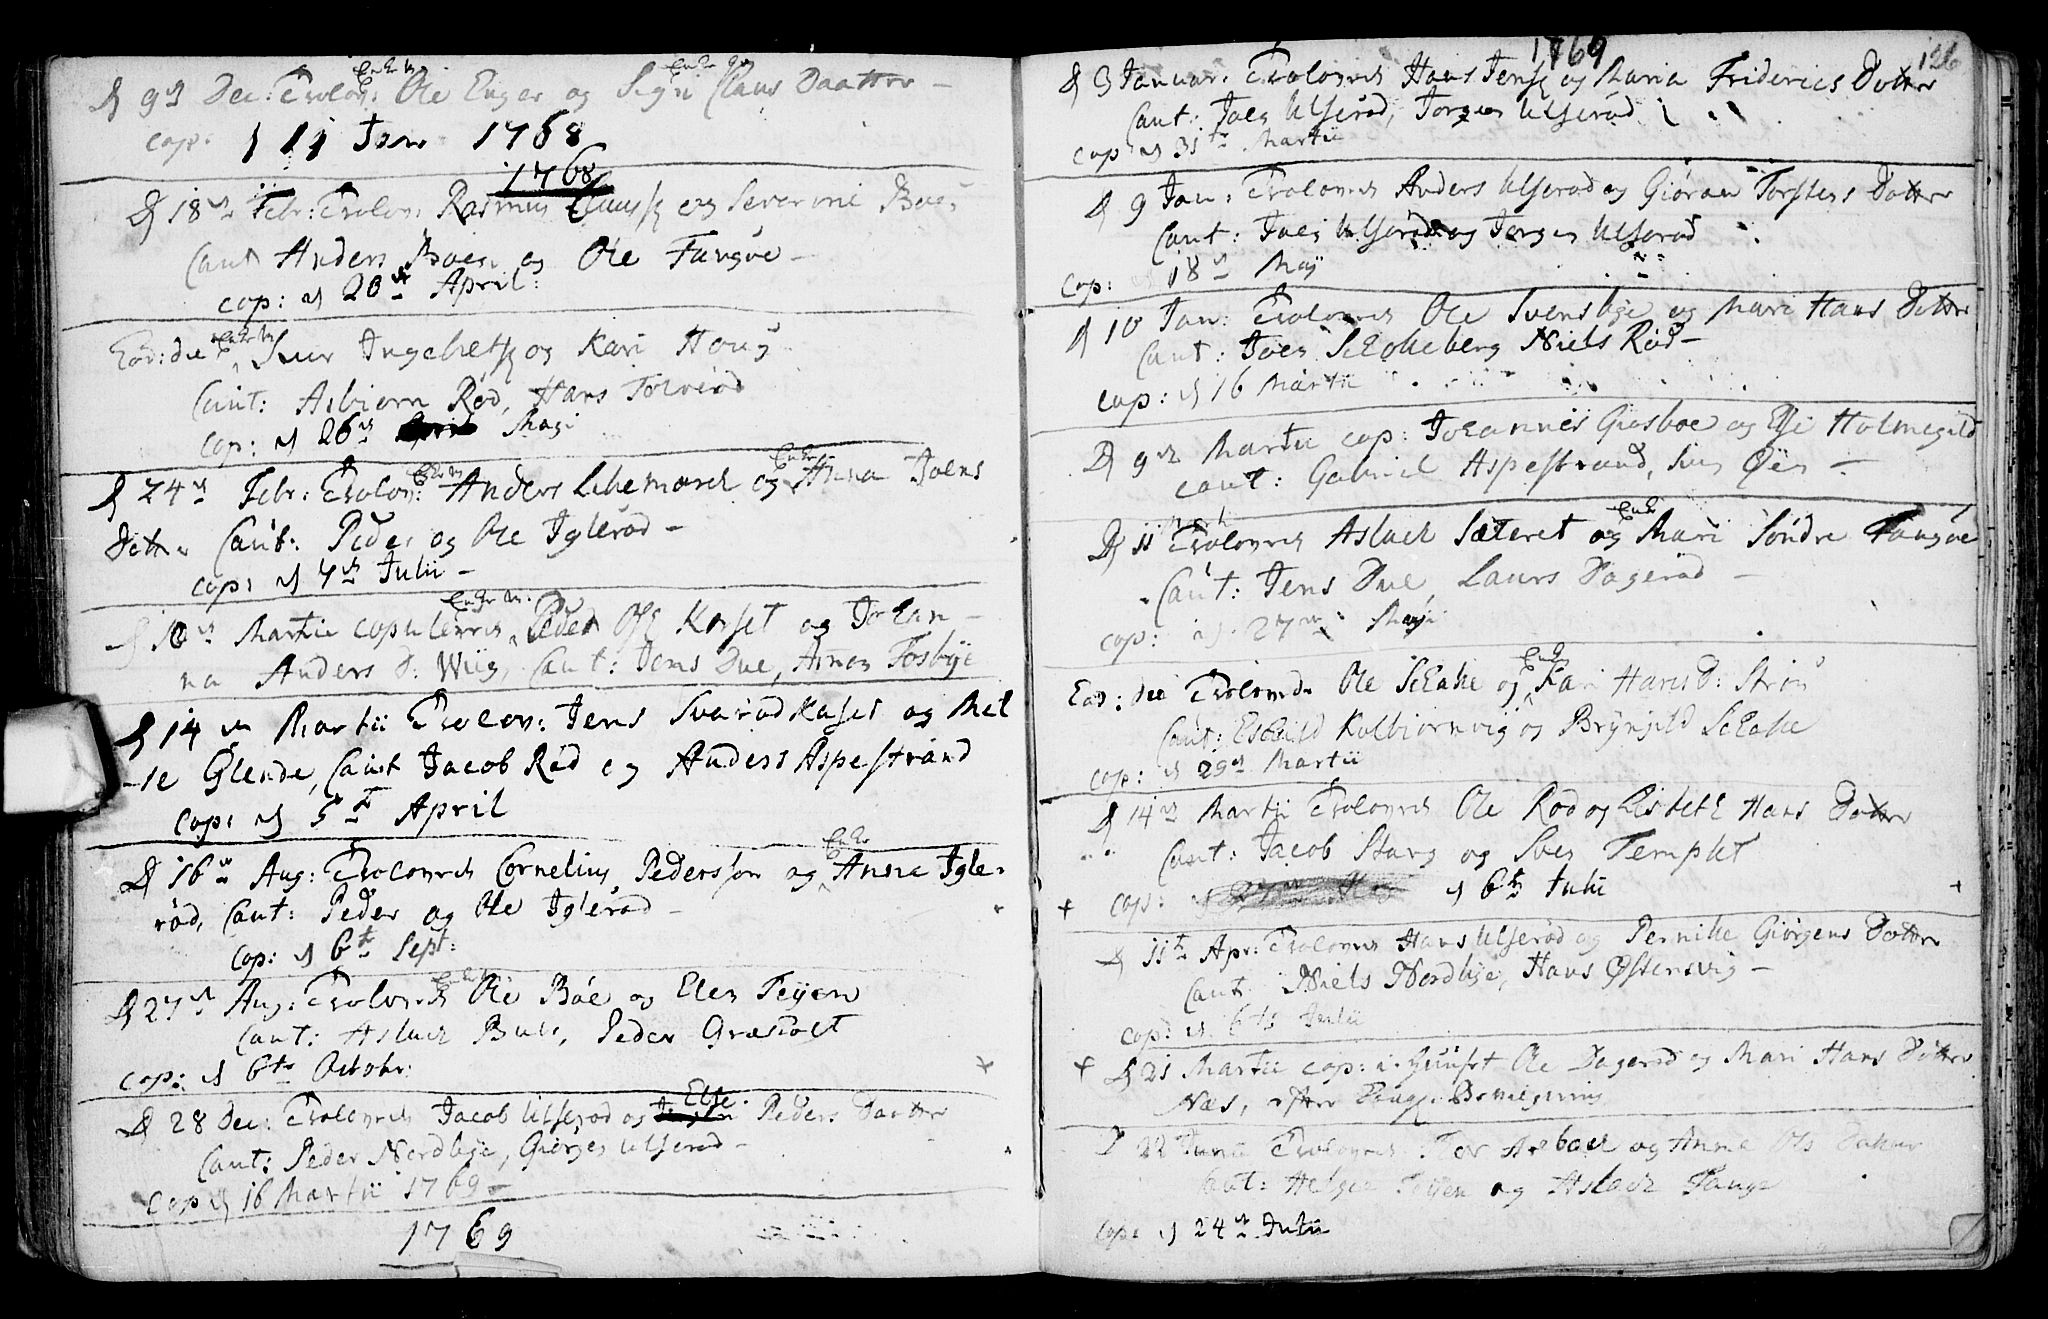 D 9de Dec: Trolov: Enke m. Ole Enger og Enke Sigri Claus Daatter –
cop: d 11 Jan 1768
1768
D 18de Febr: Trolov: Rasmus og Severine Boe
Caut Anders Boe og Ole Tangve –
cop: d 20de April:
Eod: die Enke m Ingebretss og Kari Houg
Caut: Asbiorn Rød, Hans Tolverød
Cop: d 26de Maji
D 24de Febr: Trolov: Enke m Anders Lekemarck og Enke Anna Joens
Dotter Caut: Peder og Ole Iglerød –
cop: d 4de Julii –
d Martii copulerede Enke m. Peder Olss Kaset og Johan–
na Anders D: Wiig, Caut: Jens Due, Amon Fosbye
D 14de Martii Trolov: Jens Svarød Kaset og Mel–
Glende, Caut Jacob Rød og Anders Aspestrand
cop: d 5te April
D 16de Aug: Trolovede Cornelius Pederssøn og Enke Anne Igle–
rød, Caut: Peder og Ole Iglerød –
cop: d 6te Sept:
D 27de Aug: Trolovede Enke m Ole Bøe og Elen Teyen
Caut: Aslach Bule, Peder Græsholt
cop: d 6te Octobr:
D 28 Dec: Trolovede Jacob Ulserød og Else Peders Daatter
Caut: Peder Nordbye, Giørgen Ulserød –
cop d 16 Martii 1769 –
1769
1769
126
D 3 Januar: Trolovede Hans Jenss og Maria Friderics Dotter
Caut: Joen Ulserød, Jorgen Ulserød
cop d 31te Martii
D 9 Jan: Trolovede Anders Ulserød og Giøran Torstens Dotter
Caut: Joen Ulserød og Jorgen Ulserød
Cop: d 18de Maj
D 10 Jan: Trolovede Ole Svensbye og Mari Hans Dotter
Caut: Joen Schokeberg Niels Rød –
cop: d 16 Martii
D 9de Martii cop: Johannes Giosboe og Else Holmegild
caut: Gabriel Aspestrand, Øien –
D 11 Mart Trolovede Aslach Sæteret og Enke Mari Søndre Tangve
Caut: Jens Due, Laurs Dagerød –
cop: d 27de Maji
Eod: die Trolovede Ole Schake og Enke Kari Hans D: Strøm
Caut: Eschild Kolbiornvig og Brynild Schake
cop: d 29de Martii
D 14de Martii Trolovede Ole Rød og Lisbeth Hans Dotter
Caut: Jacob Stang og Sven Templet
cop: d 6te Julii
D 11te Apr: Trolovede Hans Ulserød og Pernille Giørgens Dotter
Caut: Niels Nordbye, Hans Østensvig –
cop: d 6te Julii
D 21 Martii cop: i Huuset Ole Dagerød og Mari Hans Dotter
Næs, efter Bevilgning
D 22 Junii Trolovede Tor Arbock og Anne Ols Datter
Caut: Helge Teyen og Aslach Tange
cop: d 24de Julii